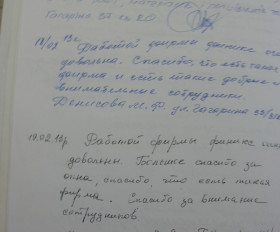 Гагарина 37 кв 20
18/02 13г.
Работой фирмы финикс
довольна. Спасибо, что есть такая
фирма и есть такие добрые и
внимательные сотрудники.
Денисова М.Ф. ул Гагарина
19.02.13г. Работой фирмы финикс
довольны Большое спасибо за
окна, спасибо, что есть такая
фирма. Спасибо за внимание
сотрудников